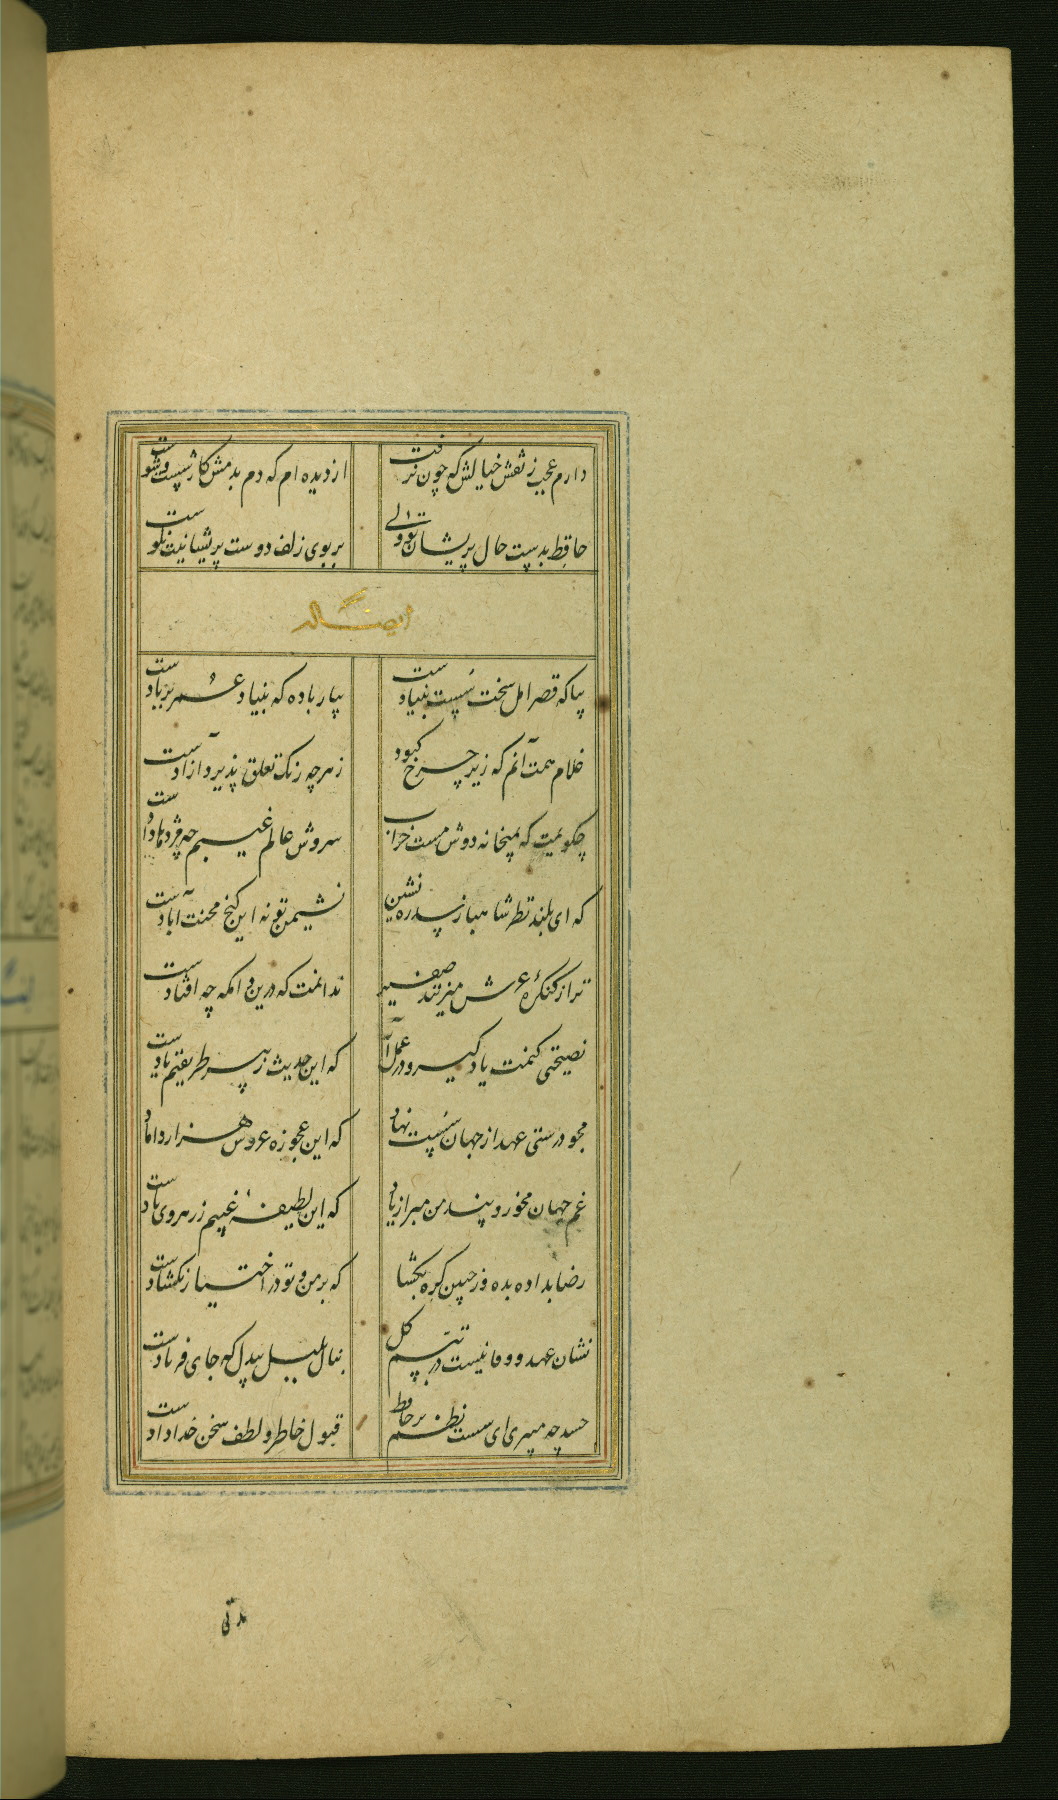 دارم عجب ز نقش خیالش که چون نرفت از دیده ام که دم بدمش کار شست و شوست
حافظ بدست حال پریشان تو ولی بر بوی زلف دوست پریشانیت نکوست
ایضا له
بیا که قصر امل سخت سست بنیادست بیار باده که بنیاد عمر بر بادست
غلام همت آنم که زیر چرخ کبود ز هر چه رنک تعلق پذیرد آزادست
چکویمت که بمیخانه دوش مست خراب سروش عالم غیبم چه مژدها دادست
که ای بلند نظر شاهباز سدره نشین نشیمن تو نه این کنج محنت آبادست
ترا ز کنکره عرش میزنند صفیر ندانمت که درین دامکه چه افتادست
نصیحتی کنمت یاد کیر و در عمل آر که این حدیث ز پیر طریقتم یادست
مجو درستی عهد از جهان سست نهاد که این عجوزه عروس هزار دامادست
غم جهان مخور و پند من مبر از یاد که این لطیفه غیبم ز رهروی یادست
رضا بداده بده وز جبین کره بکشا که بر من و تو در اختیار نکشادست
نشان عهد و وفا نیست در تبسم کل بنال بلبل بیدل که جای فریادست
حسد چه میبری ای سست نظم بر حافظ قبول خاطر و لطف سخن خدادادست